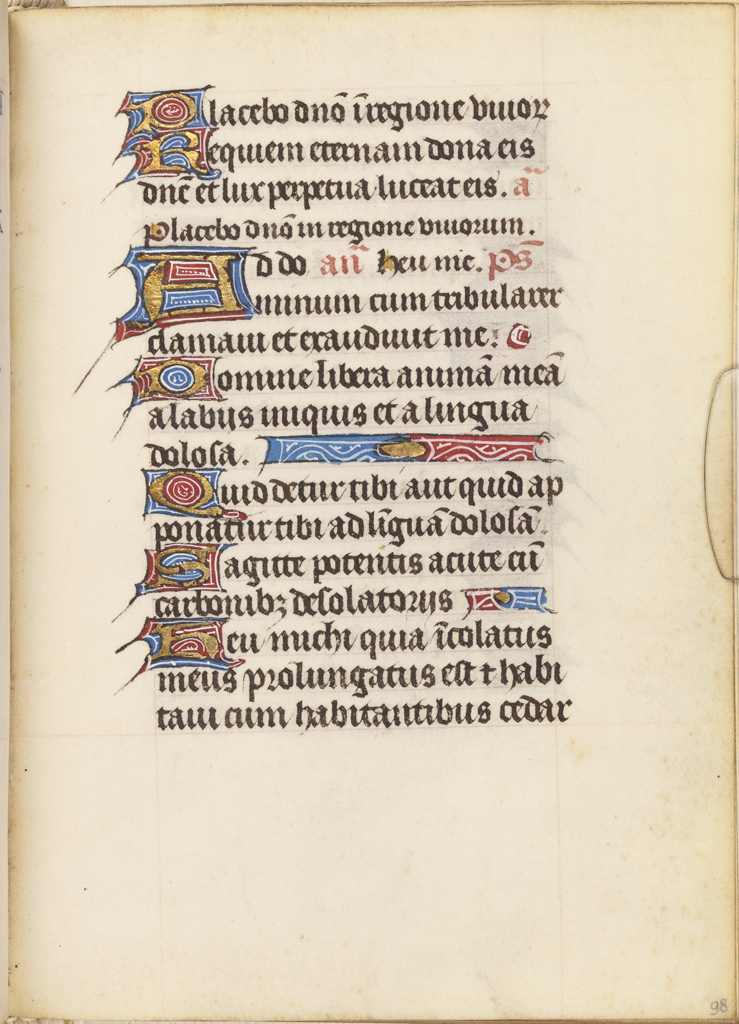 Placebo dnō īregione viuoꝝ
Requiem eternam dona eis
dnē et lux perpetua luceat eis. ā
Placebo dnō in regione viuorum.
Ad do añ heu me. pS̄
Dominum cum tribularer
clamaui et exaudiuit me. C
Domine libera animā meā
a labiis iniquis et a lingua
dolosa.
Quid detur tibi aut quid ap
ponatur tibi ad līguā dolosā.
Sagitte potentis acute cū
carbonibꝫ desolatoriis
Heu michi quia īcolatus
meus prolungatus est ⁊ habi
taui cum habitantibus cedar
98